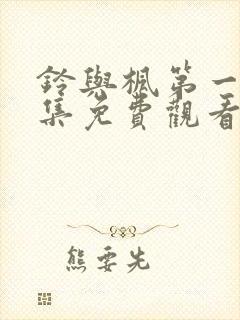 鈴與楓第一
集免費觀看
熊要先